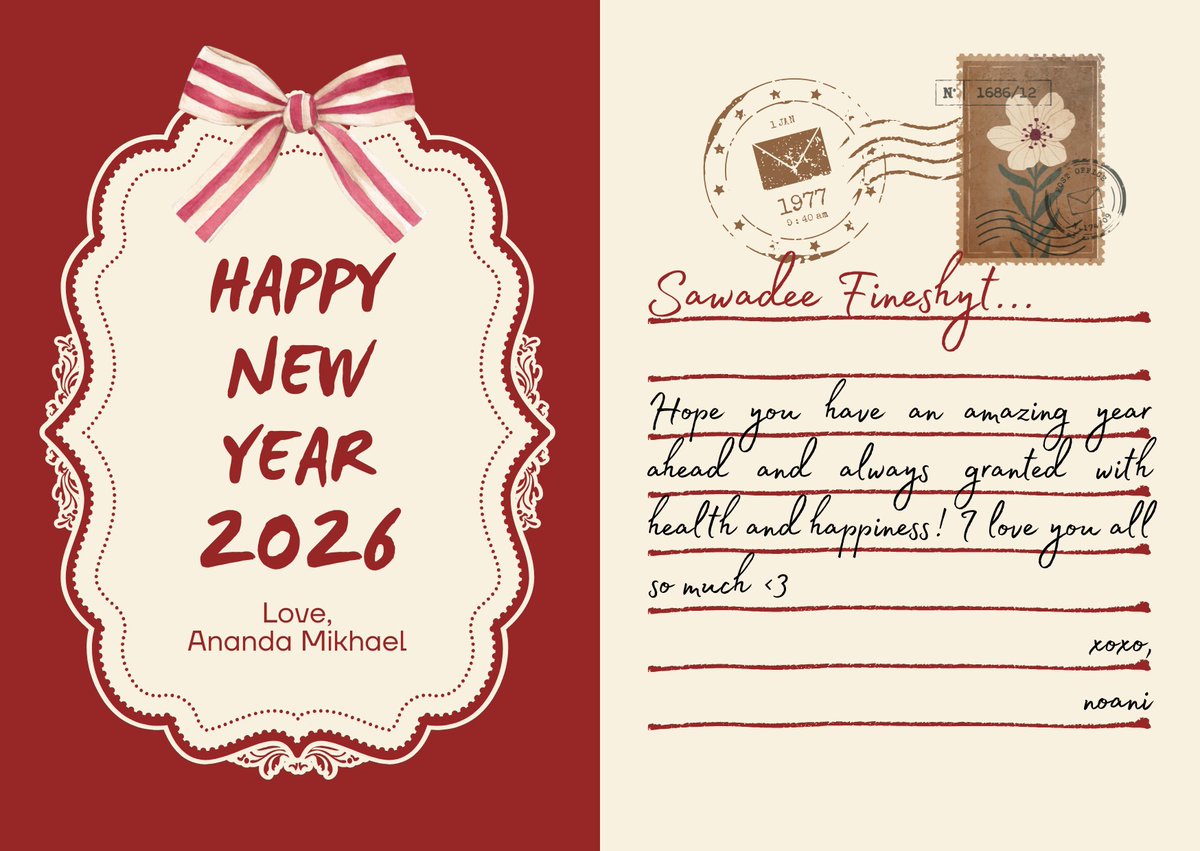 HAPPY
NEW
YEAR
2026
Love,
Ananda Mikhael
1 JAN
1977
9:40 am
Nº 1686/12
POST OFFICE
Sawadee Fineshyt...
Hope you have an amazing year
ahead and always granted with
health and happiness! I love you all
so much <3
xoxo,
noani